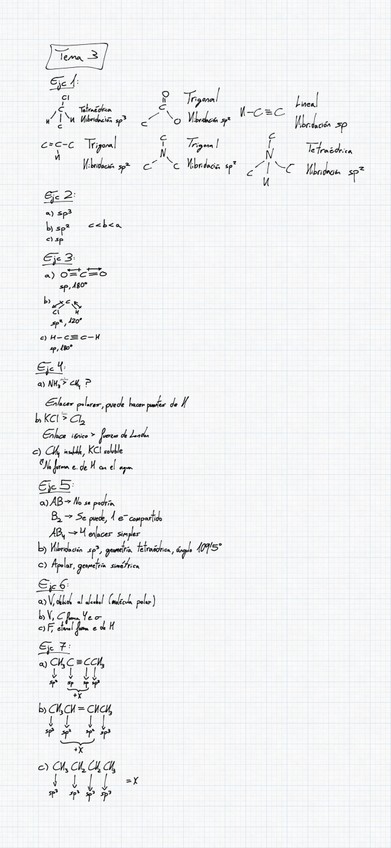 Tema 3
Ejc 1:
Cl
C
H C H
Tetraédrica
Hibridación sp³
O
C
C O
Trigonal
Hibridación sp²
H-C≡C
Lineal
Hibridación sp
C=C-C
H
Trigonal
Hibridación sp²
C
N
C C
Trigonal
Hibridación sp²
C
N
C
H
Tetraédrica
Hibridación sp²
Ejc 2:
a) sp³
b) sp² c<b<a
c) sp
Ejc 3:
a) O=C=O
sp, 180°
b) C
Cl H
sp², 120°
c) H-C≡C-H
sp, 180°
Ejc 4:
a) NH₃ > CH₄ ?
Enlaces polares, puede hacer puentes de H
b) KCl > Cl₂
Enlace iónico > fuerza de London
c) CH₄ insoluble, KCl soluble
No forma e. de H con el agua
Ejc 5:
a) AB → No se podría
B₂ → Se puede, 1 e⁻ compartido
AB₄ → 4 enlaces simples
b) Hibridación sp³, geometría tetraédrica, ángulo 109'5°
c) Apolar, geometría simétrica
Ejc 6:
a) V, debido al alcohol (molécula polar)
b) V, C forma 4 e σ
c) F, etanol forma e de H
Ejc 7:
a) CH₃C≡CCH₃
sp³ sp sp sp³
+X
b) CH₃CH=CHCH₃
sp³ sp² sp² sp³
+X
c) CH₃ CH₂ CH₂ CH₃ =X
sp³ sp³ sp³ sp³